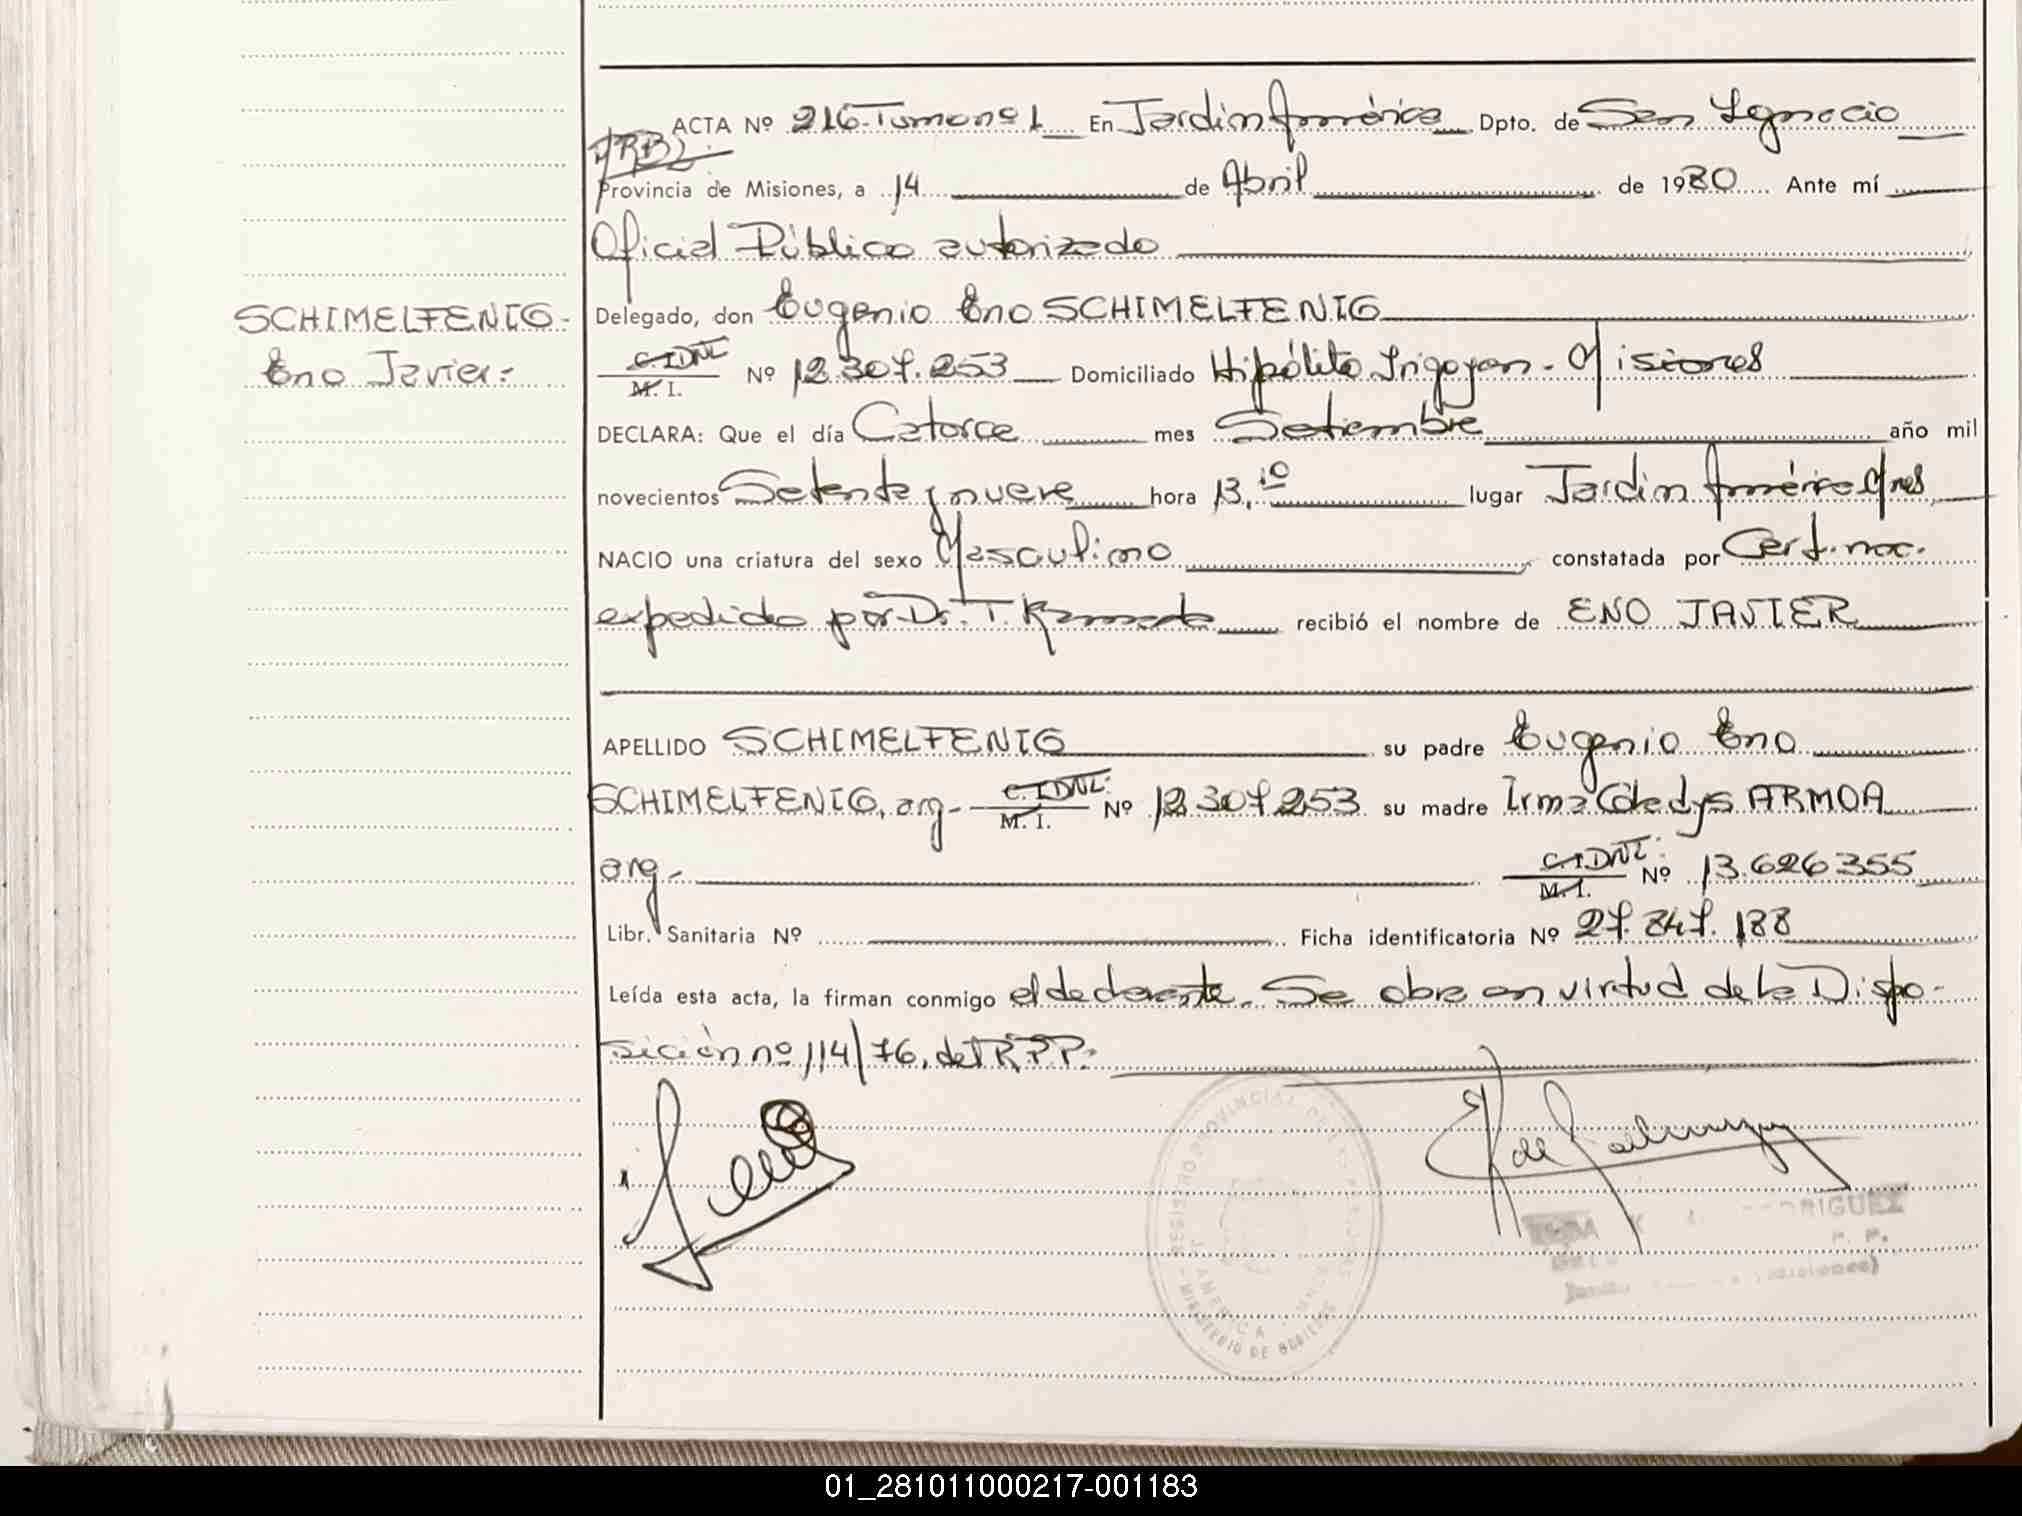 ACTA Nº 216-Tomo nº 1 En Jardín América Dpto. de San Ignacio
Provincia de Misiones, a 14 de Abril de 1980 Ante mí
Oficial Público autorizado
SCHIMELFENIG-
Delegado, don Eugenio Eno SCHIMELFENIG
Eno Javier.-
C.I.DNI. M. I. Nº 12.307.253 Domiciliado Hipólito Irigoyen - Misiones
DECLARA: Que el día Catorce mes Setiembre año mil
novecientos Setenta y nueve hora 13,10 lugar Jardín América Mnes
NACIO una criatura del sexo Masculino constatada por Cert. nac.
expedido por Dr. T. recibió el nombre de ENO JAVIER
APELLIDO SCHIMELFENIG su padre Eugenio Eno
SCHIMELFENIG, arg- C.IDNI: M. I. Nº 12.307.253 su madre Irma Gledys ARMOA
arg- C.IDNI: M. I. Nº 13.626.355
Libr. Sanitaria Nº Ficha identificatoria Nº 27.847.188
Leída esta acta, la firman conmigo el declarante. Se abre en virtud de la Dispo-
sición nº 114/76, del R.P.P.
REGISTRO PROVINCIAL DE LAS PERSONAS
MINISTERIO DE GOBIERNO
01_281011000217-001183